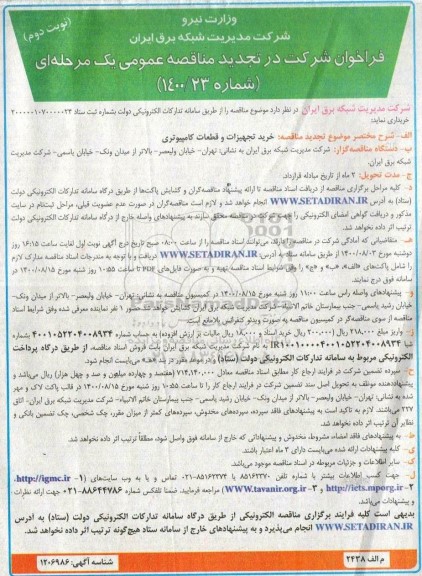 وزارت نیرو
شرکت مدیریت شبکه برق ایران
(نوبت دوم)
فراخوان شرکت در تجدید مناقصه عمومی یک مرحله‌ای
(شماره ۱۴۰۰/۲۳)
شرکت مدیریت شبکه برق ایران در نظر دارد موضوع مناقصه را از طریق سامانه تدارکات الکترونیکی دولت بشماره ثبت ستاد
خریداری نماید:
الف - شرح مختصر موضوع تجدید مناقصه: خرید تجهیزات و قطعات کامپیوتری
ب- دستگاه مناقصه‌گزار: شرکت مدیریت شبکه برق ایران به نشانی: تهران- خیابان ولیعصر- بالاتر از میدان ونک- خیابان یاسمی- شرکت مدیریت
شبکه برق ایران.
ج- مدت تحویل: ۲ ماه از تاریخ مبادله قرارداد.
د- کلیه مراحل برگزاری مناقصه از دریافت اسناد مناقصه تا ارائه پیشنهاد مناقصه‌گران و گشایش پاکت‌ها از طریق درگاه سامانه تدارکات الکترونیکی دولت
(ستاد) به آدرس WWW.SETADIRAN.IR انجام خواهد شد و لازم است مناقصه‌گران در صورت عدم عضویت قبلی، مراحل ثبت‌نام در سایت
مذکور و دریافت گواهی امضای الکترونیکی را جهت شرکت در مناقصه محقق سازند به پیشنهادهای واصله خارج از درگاه سامانه تدارکات الکترونیکی دولت
ترتیب اثر داده نخواهد شد.
ه- متقاضیانی که آمادگی شرکت در مناقصه را دارند، می‌توانند اسناد مناقصه را از ساعت ۰۸:۰۰ صبح تاریخ درج آگهی نوبت اول لغایت ساعت ۱۶:۱۵ روز
دوشنبه مورخ ۱۴۰۰/۰۸/۰۳ از طریق سامانه ستاد به آدرس: WWW.SETADIRAN.IR دریافت و با توجه به مندرجات اسناد مناقصه مدارک لازم
را شامل پاکت‌های «الف»، «ب» و «ج» را وفق شرایط اسناد مناقصه تهیه و به صورت فایل‌های PDF تا ساعت ۱۰:۵۵ روز شنبه مورخ ۱۴۰۰/۰۸/۱۵ در
سامانه فوق درج نمایند.
و- پیشنهادهای واصله راس ساعت ۱۱:۰۰ روز شنبه مورخ ۱۴۰۰/۰۸/۱۵ در کمیسیون مناقصه به نشانی: تهران- خیابان ولیعصر- بالاتر از میدان ونک-
خیابان رشید یاسمی- جنب بیمارستان خاتم الانبیاء- شرکت مدیریت شبکه برق ایران گشایش خواهد شد. حضور ۱ نفر نماینده معرفی شده وفق شرایط اسناد
مناقصه از سوی مناقصه‌گر در کمیسیون مناقصه به صورت ویدئو کنفرانس بلامانع است.
ز- واریز مبلغ ۲۱۸,۰۰۰ ریال (۲۰۰,۰۰۰ ریال خرید اسناد و ۱۸,۰۰۰ ریال مالیات بر ارزش افزوده) به حساب شماره ۴۰۰۱۰۵۲۲۰۴۰۰۸۹۳۴
به نام شرکت مدیریت شبکه برق ایران بابت فروش اسناد مناقصه، از طریق درگاه پرداخت
الکترونیکی مربوط به سامانه تدارکات الکترونیکی دولت (ستاد)
ح- سپرده تضمین شرکت در فرایند ارجاع کار مطابق اسناد مناقصه معادل ۷۱۴,۱۴۰,۰۰۰ (هفتصد و چهارده میلیون و صد و چهل هزار) ریال می‌باشد و
پیشنهاددهنده موظف به تحویل اصل سند تضمین شرکت در فرایند ارجاع کار را تا ساعت ۱۰:۵۵ روز شنبه مورخ ۱۴۰۰/۰۸/۱۵ در قالب پاکت لاک و مهر
شده به نشانی: تهران- خیابان ولیعصر- بالاتر از میدان ونک- خیابان رشید یاسمی- جنب بیمارستان خاتم الانبیاء- شرکت مدیریت شبکه برق ایران- اتاق
۲۲۷ می‌باشند. لازم به تاکید است به پیشنهادهای فاقد سپرده، سپرده‌های مخدوش، سپرده‌های کمتر از میزان مقرر، چک شخصی، چک تضمینی بانکی و
نظایر آن ترتیب اثر داده نخواهد شد.
ط- به پیشنهادهای فاقد امضاء، مشروط، مخدوش و پیشنهاداتی که خارج از سامانه فوق واصل شود، مطلقاً ترتیب اثر داده نخواهد شد.
ی- کلیه پیشنهادات ارائه شده می‌بایست دارای ۳ ماه اعتبار باشند.
ک- سایر اطلاعات و جزئیات مربوطه در اسناد مناقصه موجود می‌باشد.
ل- جهت کسب اطلاعات بیشتر با شماره تلفن ۸۵۱۶۲۳۷۰ یا ۸۵۱۶۲۳۷۳-۰۲۱ تماس و یا به وب سایت‌های (۱- http://igmc.ir،
۲- http://iets.mporg.ir و ۳- www.tavanir.org.ir) مراجعه فرمایید. ضمنا تلفکس شماره ۸۸۶۴۴۷۸۶-۰۲۱ جهت ارائه نظرات
و پیشنهادات می‌باشد.
بدیهی است کلیه فرایند برگزاری مناقصه الکترونیکی از طریق درگاه سامانه تدارکات الکترونیکی دولت (ستاد) به آدرس
WWW.SETADIRAN.IR انجام می‌پذیرد و به پیشنهادهای خارج از سامانه ستاد هیچ‌گونه ترتیب اثر داده نخواهد شد.
م الف ۲۴۳۸
شناسه آگهی: ۱۲۰۶۹۸۶